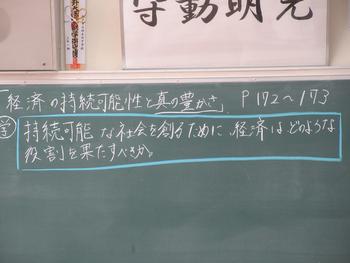 守動明元
「経済の持続可能性と真の豊かさ」 P172〜173
学 持続可能な社会を創るために、経済はどのような
役割を果たすべきか。